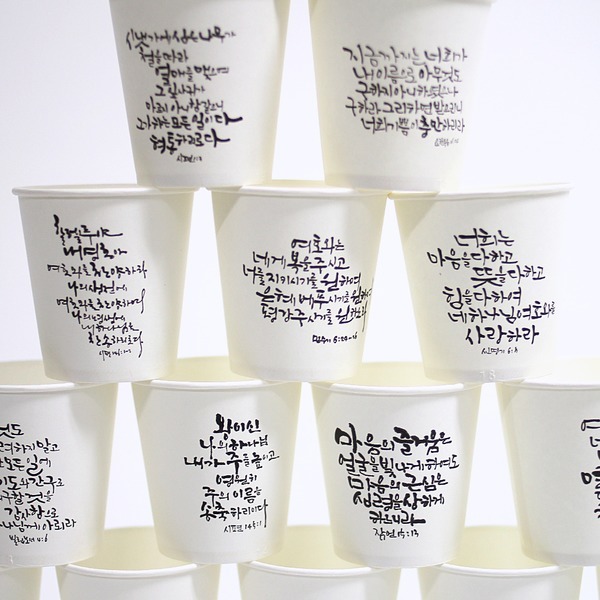 시냇가에 심은 나무가
철을 따라
열매를 맺으며
그 잎사귀가
마르지 아니함같으니
그가 하는 모든 일이 다
형통하리로다
시편 1:3
지금까지는 너희가
내 이름으로 아무것도
구하지 아니하였으나
구하라 그리하면 받으리니
너희 기쁨이 충만하리라
할렐루야
내 영혼아
여호와를 찬양하라
나의 생전에
여호와를 찬양하며
나의 평생에
내 하나님을
찬송하리로다
시편 146:1-2
여호와는
네게 복을 주시고
너를 지키시기를 원하며
은혜 베푸시기를 원하며
평강 주시기를 원하노라
민수기 6:24-26
너희는
마음을 다하고
뜻을 다하고
힘을 다하여
네 하나님 여호와를
사랑하라
신명기 6:5
것도
려하지 말고
모든 일에
기도와 간구로
구할 것을
감사함으로
나님께 아뢰라
빌립보서 4:6
왕이신
나의 하나님
내가 주를 높이고
영원히
주의 이름을
송축하리이다
시편 145:1
마음의 즐거움은
얼굴을 빛나게 하여도
마음의 근심은
심령을 상하게
하느니라
잠언 15:13